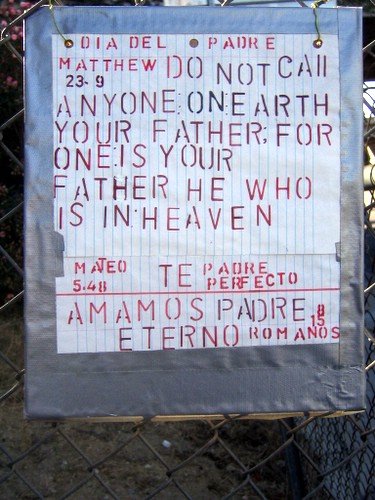 DIA DEL PADRE
MATTHEW DO NOT CAll
23-9
ANYONE ON EARTH
YOUR FATHER; FOR
ONE IS YOUR
FATHER HE WHO
IS IN HEAVEN
MATEO TE PADRE
5.48 PERFECTO
AMAMOS PADRE 8
ETERNO ROMANOS 15